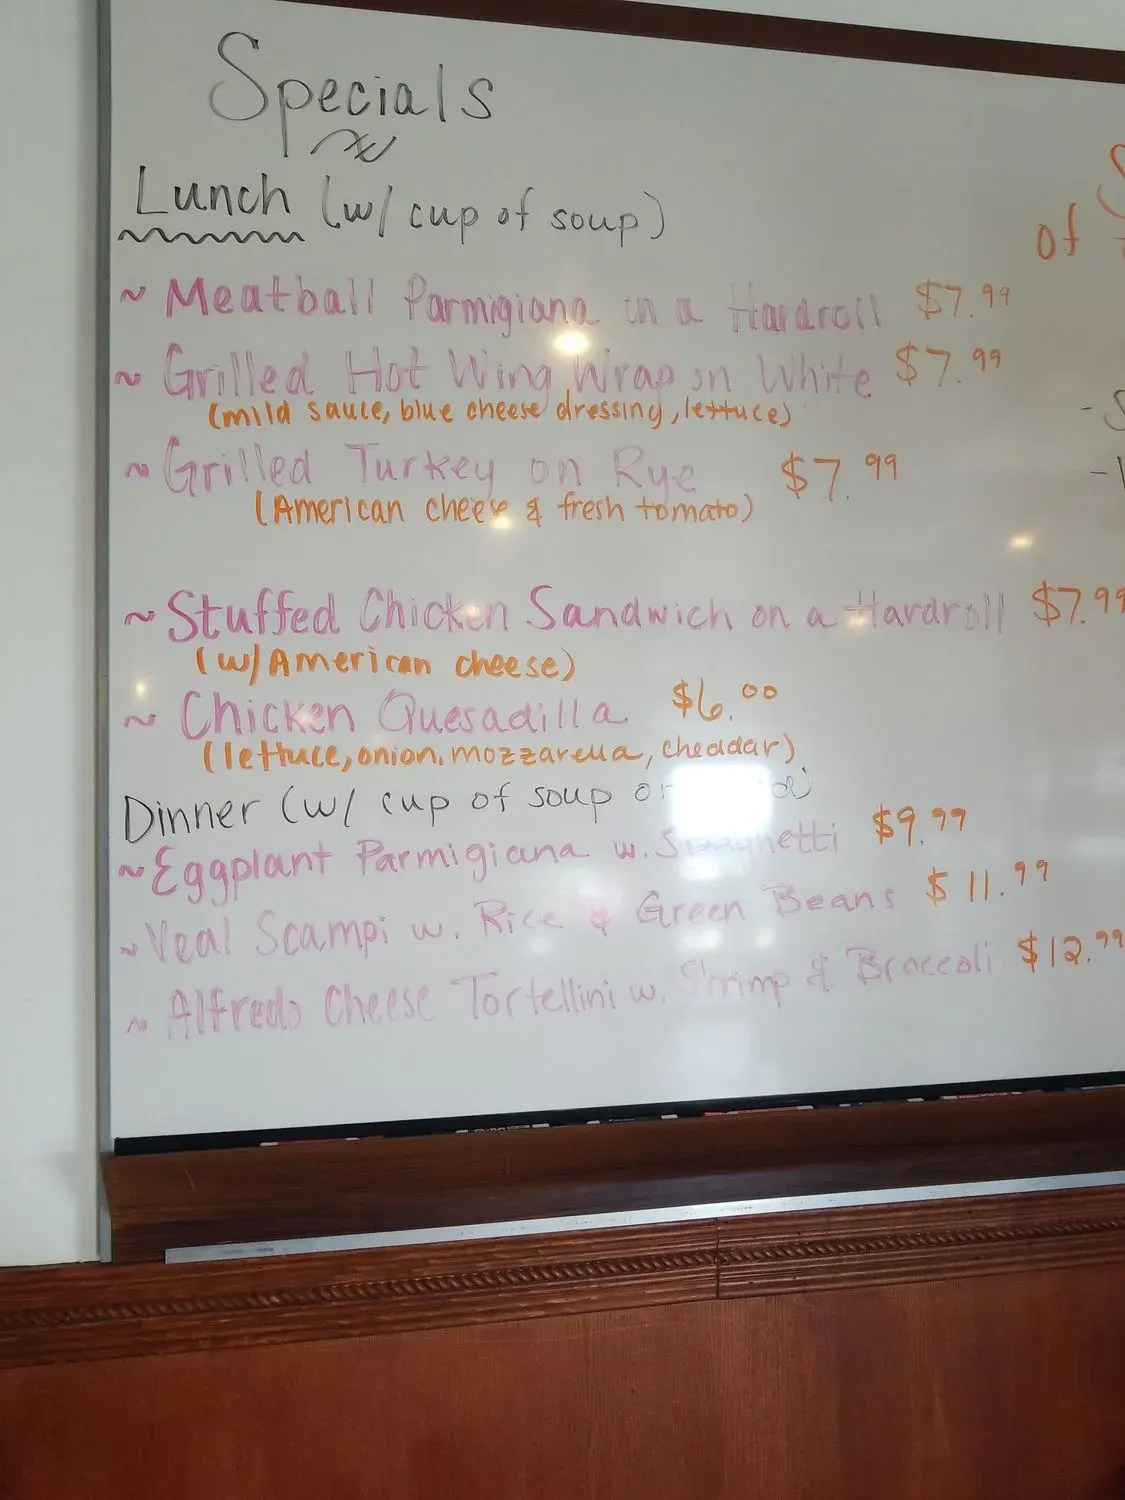 Specials
Lunch (w/ cup of soup)
~ Meatball Parmigiana in a Hardroll $7.99
~ Grilled Hot Wing Wrap on White $7.99
(mild sauce, blue cheese dressing, lettuce)
~ Grilled Turkey on Rye $7.99
(American cheese & fresh tomato)
~ Stuffed Chicken Sandwich on a Hardroll $7.99
(w/American cheese)
~ Chicken Quesadilla $6.00
(lettuce, onion, mozzarella, cheddar)
Dinner (w/ cup of soup
~ Eggplant Parmigiana w. Spaghetti $9.99
~ Veal Scampi w. Rice & Green Beans $11.99
~ Alfredo Cheese Tortellini w. Shrimp & Broccoli $12.99
of